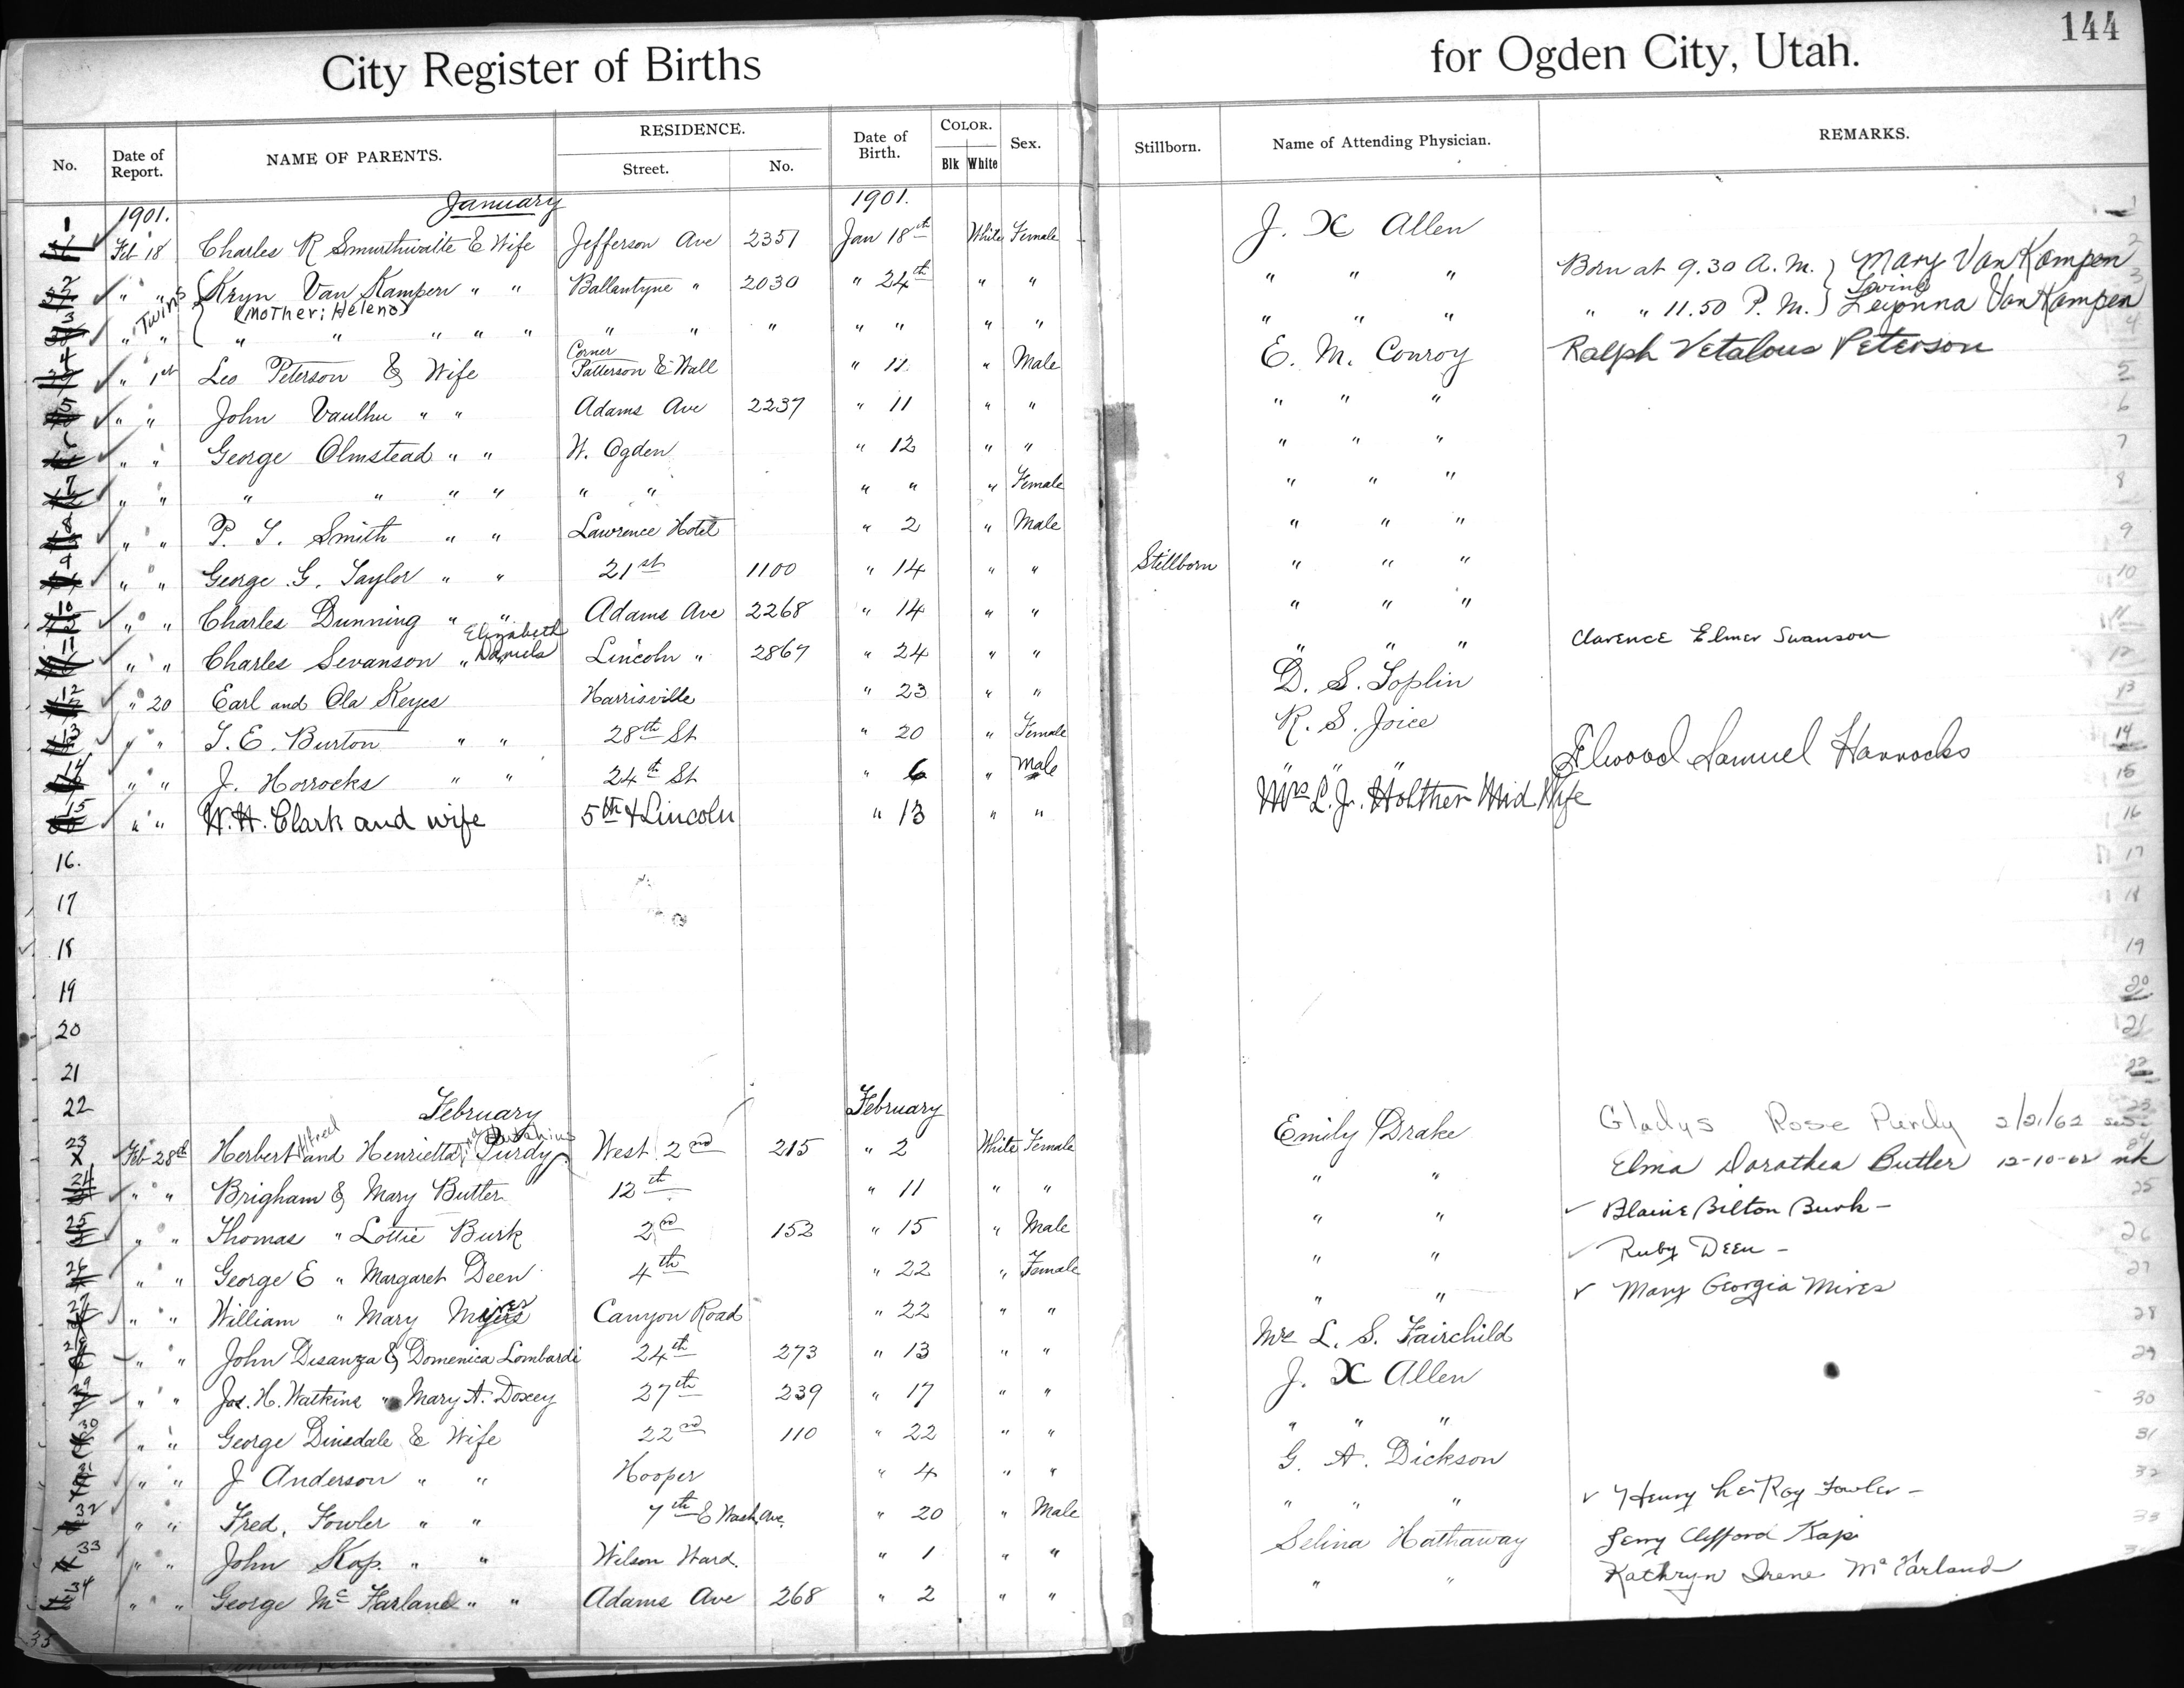 144
City Register of Births for Ogden City, Utah.
No. Date of Report. NAME OF PARENTS. RESIDENCE. Street. No. Date of Birth. COLOR. Blk White Sex. Stillborn. Name of Attending Physician. REMARKS.
1901. January 1901.
1 Feb 18 Charles R Smurthwaite & Wife Jefferson Ave 2351 Jan 18th White Female J. X Allen
2 " " Twins Kryn Van Kampen " " Ballantyne " 2030 " 24th " " " " " Born at 9.30 A.M. } Mary Van Kampen
(Mother: Helena)
3 " " " " " " " " " " " " " " " " " " " 11.50 P.M. } Leyonna Van Kampen
4 " 1st Leo Peterson & Wife Corner Patterson & Wall " 11 " Male E. M. Conroy Ralph Vetalous Peterson
5 " " John Vaulhu " " Adams Ave 2237 " 11 " " " " "
6 " " George Olmstead " " W. Ogden " 12 " " " " "
7 " " " " " " " " " " " Female " " "
8 " " P. T. Smith " " Lawrence Hotel " 2 " Male " " "
9 " " George G. Taylor " " 21st 1100 " 14 " " Stillborn " " "
10 " " Charles Dunning " " Adams Ave 2268 " 14 " " " " "
11 " " Charles Swanson " Elizabeth Daniels Lincoln " 2867 " 24 " " " " " Clarence Elmer Swanson
12 " 20 Earl and Ola Keyes Harrisville " 23 " " D. S. Joplin
13 " " T. E. Burton " " 28th St " 20 " Female R. S. Joice
14 " " J. Horrocks " " 24th St " 6 " Male " " " Elwood Samuel Harrocks
15 " " W. H. Clark and wife 5th & Lincoln " 13 " " Mrs L. J. Holther Mid Wife
16.
17
18
19
20
21
22 February February
23 Feb 28th Herbert Alfred and Henrietta Purdy West 2nd 215 " 2 White Female Emily Drake Gladys Rose Purdy 2/21/62
24 " " Brigham & Mary Butler 12th " 11 " " " " Elma Dorathea Butler 12-10-62 nk
25 " " Thomas " Lottie Burk 2nd 153 " 15 " Male " " ✓ Blaine Bilton Burk -
26 " " George E " Margaret Deen 4th " 22 " Female " " ✓ Ruby Deen -
27 " " William " Mary Mires Canyon Road " 22 " " " " ✓ Mary Georgia Mires
28 " " John Disanza & Domenica Lombardi 24th 273 " 13 " " Mrs L. S. Fairchild
29 " " Jos. H. Watkins " Mary A. Doxey 27th 239 " 17 " " J. X Allen
30 " " George Dinsdale & Wife 22nd 110 " 22 " " " " "
31 " " J Anderson " " Hooper " 4 " " G. A. Dickson
32 " " Fred. Fowler " " 7th & Wash. Ave. " 20 " Male " " " ✓ Henry LeRoy Fowler -
33 " " John Kap. " " Wilson Ward. " 1 " " Selina Hathaway Jerry Clifford Kap
34 " " George McFarland " " Adams Ave 268 " 2 " " " " Kathryn Irene McFarland
35